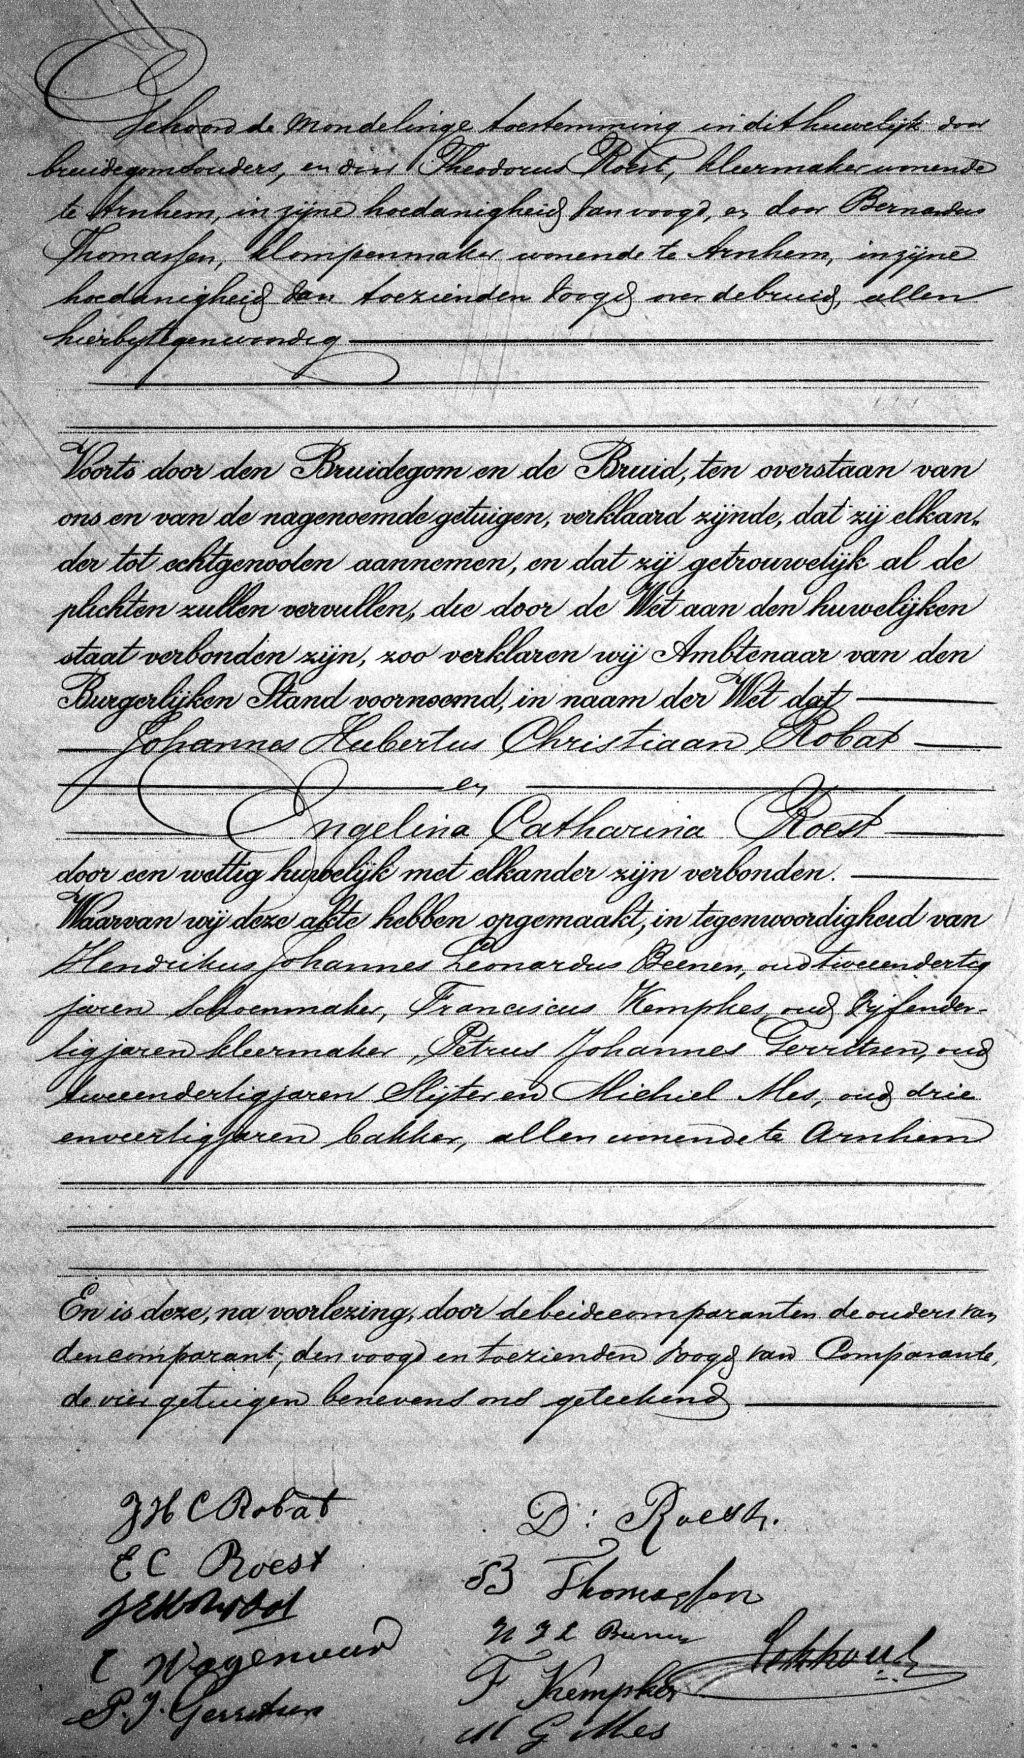 Gehoord de mondelinge toestemming in dit huwelijk door
bruidegoms ouders, en door Theodorus Roest, kleermaker wonende
te Arnhem, in zijne hoedanigheid van voogd, en door Bernardus
Thomassen, klompenmaker wonende te Arnhem, in zijne
hoedanigheid van toezienden voogd over de bruid, allen
hierbij tegenwoordig
Voorts door den Bruidegom en de Bruid, ten overstaan van
ons en van de nagenoemde getuigen, verklaard zijnde, dat zij elkan„
der tot echtgenooten aannemen, en dat zij getrouwelijk al de
plichten zullen vervullen, die door de Wet aan den huwelijken
staat verbonden zijn, zoo verklaren wij Ambtenaar van den
Burgerlijken Stand voornoemd, in naam der Wet dat
Johannes Hubertus Christiaan Robat
en
Engelina Catharina Roest
door een wettig huwelijk met elkander zijn verbonden.
Waarvan wij deze akte hebben opgemaakt, in tegenwoordigheid van
Hendrikus Johannes Leonardus Beenen, oud tweeendertig
jaren schoenmaker, Franciscus Kemphes, oud vijfender-
tig jaren kleermaker, Petrus Johannes Gerritsen, oud
tweeendertig jaren Slijter en Michiel Mes, oud drie
enveertig jaren bakker, allen wonende te Arnhem
En is deze, na voorlezing, door de beide comparanten de ouders van
den comparant, den voogd en toezienden voogd van Comparante,
de vier getuigen benevens ons geteekend
J H C Robat
D: Roest.
E C Roest
B Thomassen
H J L Beenen
C Wagenvoord
F Kemphes
P. J. Gerritsen
M G Mes